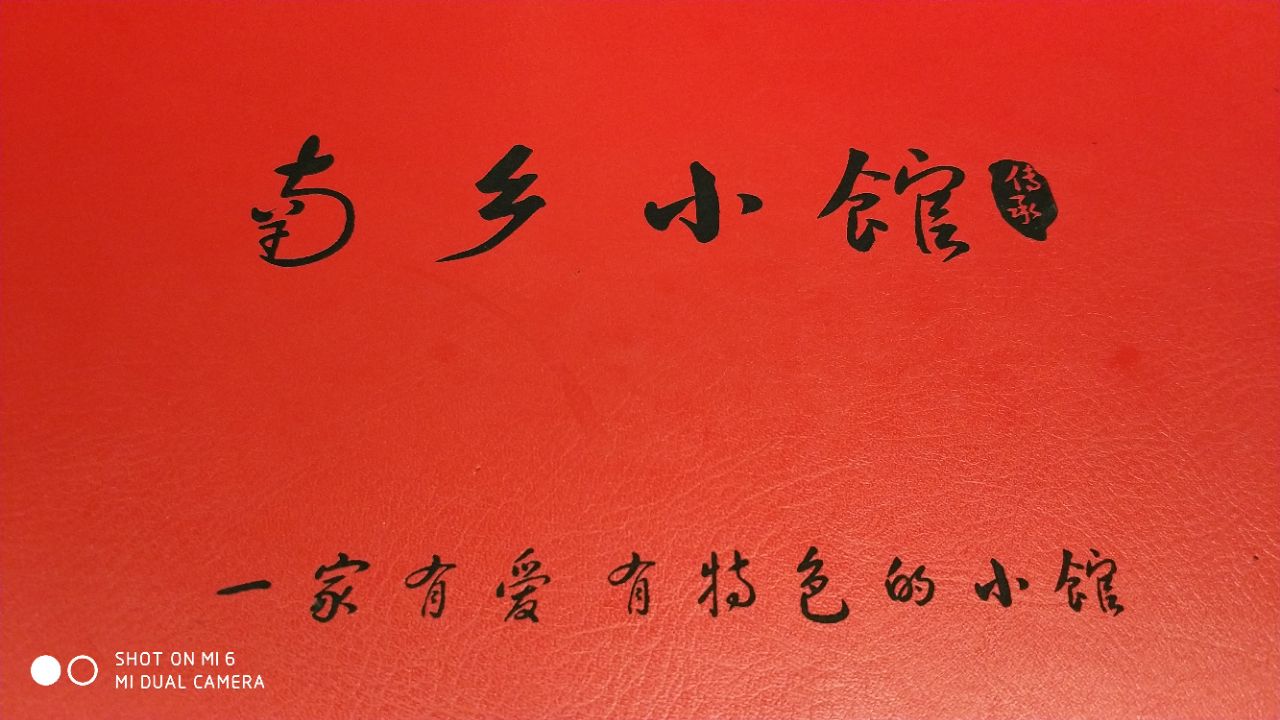 南乡小館
传承
一家有爱有特色的小館
SHOT ON MI 6
MI DUAL CAMERA